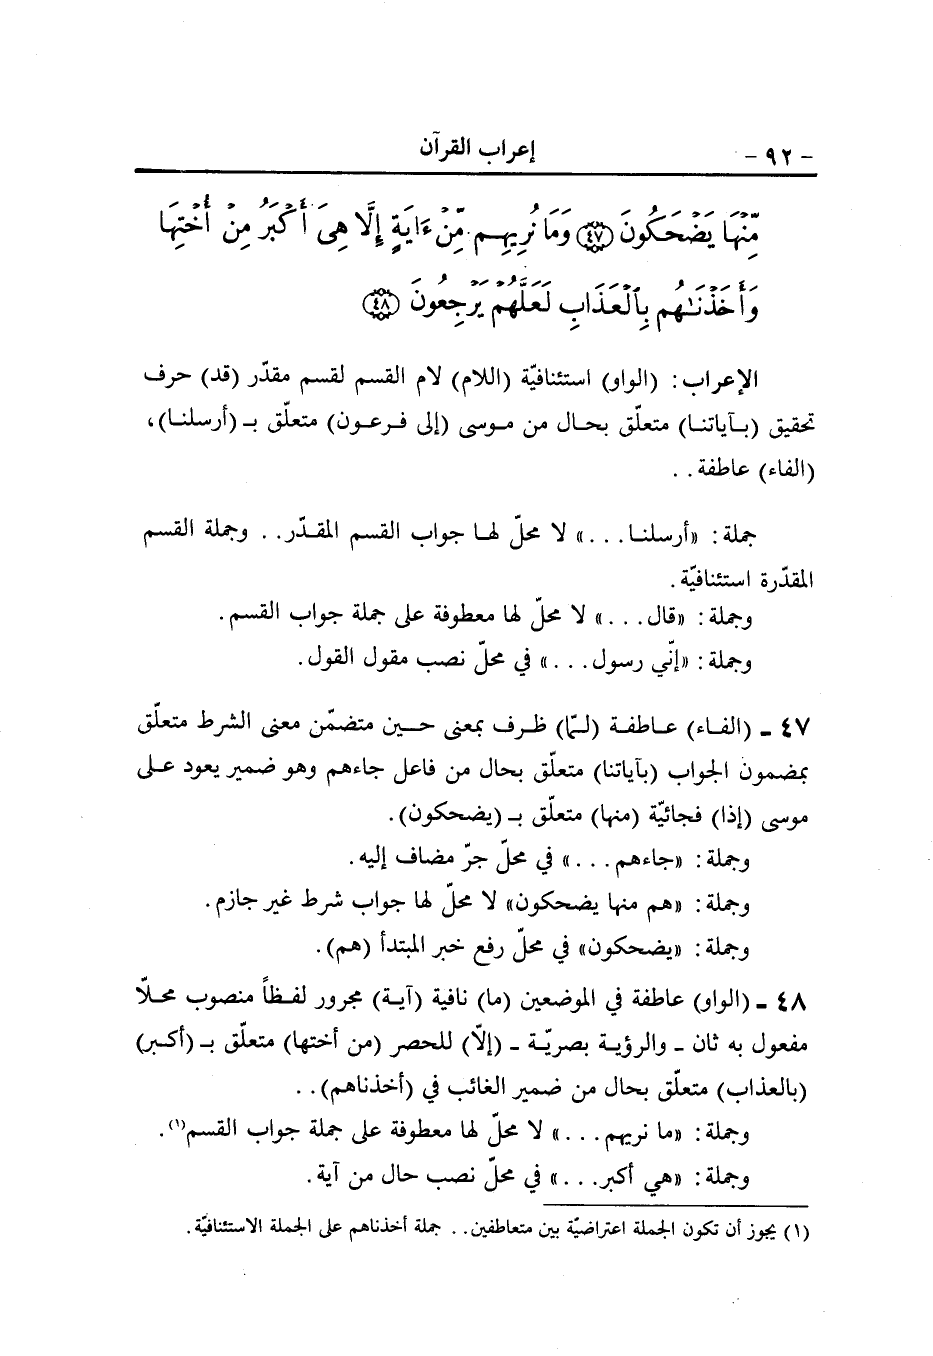 - ٩٢ - إعراب القرآن
مِّنْهَا يَضْحَكُونَ ﴿٤٧﴾ وَمَا نُرِيهِم مِّنْ ءَايَةٍ إِلَّا هِىَ أَكْبَرُ مِنْ أُخْتِهَا
وَأَخَذْنَـٰهُم بِٱلْعَذَابِ لَعَلَّهُمْ يَرْجِعُونَ ﴿٤٨﴾
الإعراب: (الواو) استئنافيّة (اللام) لام القسم لقسم مقدّر (قد) حرف
تحقيق (بآياتنا) متعلّق بحال من موسى (إلى فرعون) متعلّق بـ (أرسلنا)،
(الفاء) عاطفة . .
جملة: «أرسلنا . . .» لا محلّ لها جواب القسم المقدّر . . وجملة القسم
المقدّرة استئنافيّة .
وجملة: «قال . . .» لا محلّ لها معطوفة على جملة جواب القسم .
وجملة: «إنّي رسول . . .» في محلّ نصب مقول القول .
٤٧ - (الفاء) عاطفة (لمّا) ظرف بمعنى حين متضمّن معنى الشرط متعلّق
بمضمون الجواب (بآياتنا) متعلّق بحال من فاعل جاءهم وهو ضمير يعود على
موسى (إذا) فجائيّة (منها) متعلّق بـ (يضحكون) .
وجملة: «جاءهم . . .» في محلّ جرّ مضاف إليه .
وجملة: «هم منها يضحكون» لا محلّ لها جواب شرط غير جازم .
وجملة: «يضحكون» في محلّ رفع خبر المبتدأ (هم) .
٤٨ - (الواو) عاطفة في الموضعين (ما) نافية (آية) مجرور لفظاً منصوب محلّا
مفعول به ثان - والرؤية بصريّة - (إلّا) للحصر (من أختها) متعلّق بـ (أكبر)
(بالعذاب) متعلّق بحال من ضمير الغائب في (أخذناهم) . .
وجملة: «ما نريهم . . .» لا محلّ لها معطوفة على جملة جواب القسم(١) .
وجملة: «هي أكبر . . .» في محلّ نصب حال من آية .
(١) يجوز أن تكون الجملة اعتراضيّة بين متعاطفين . . جملة أخذناهم على الجملة الاستئنافيّة .